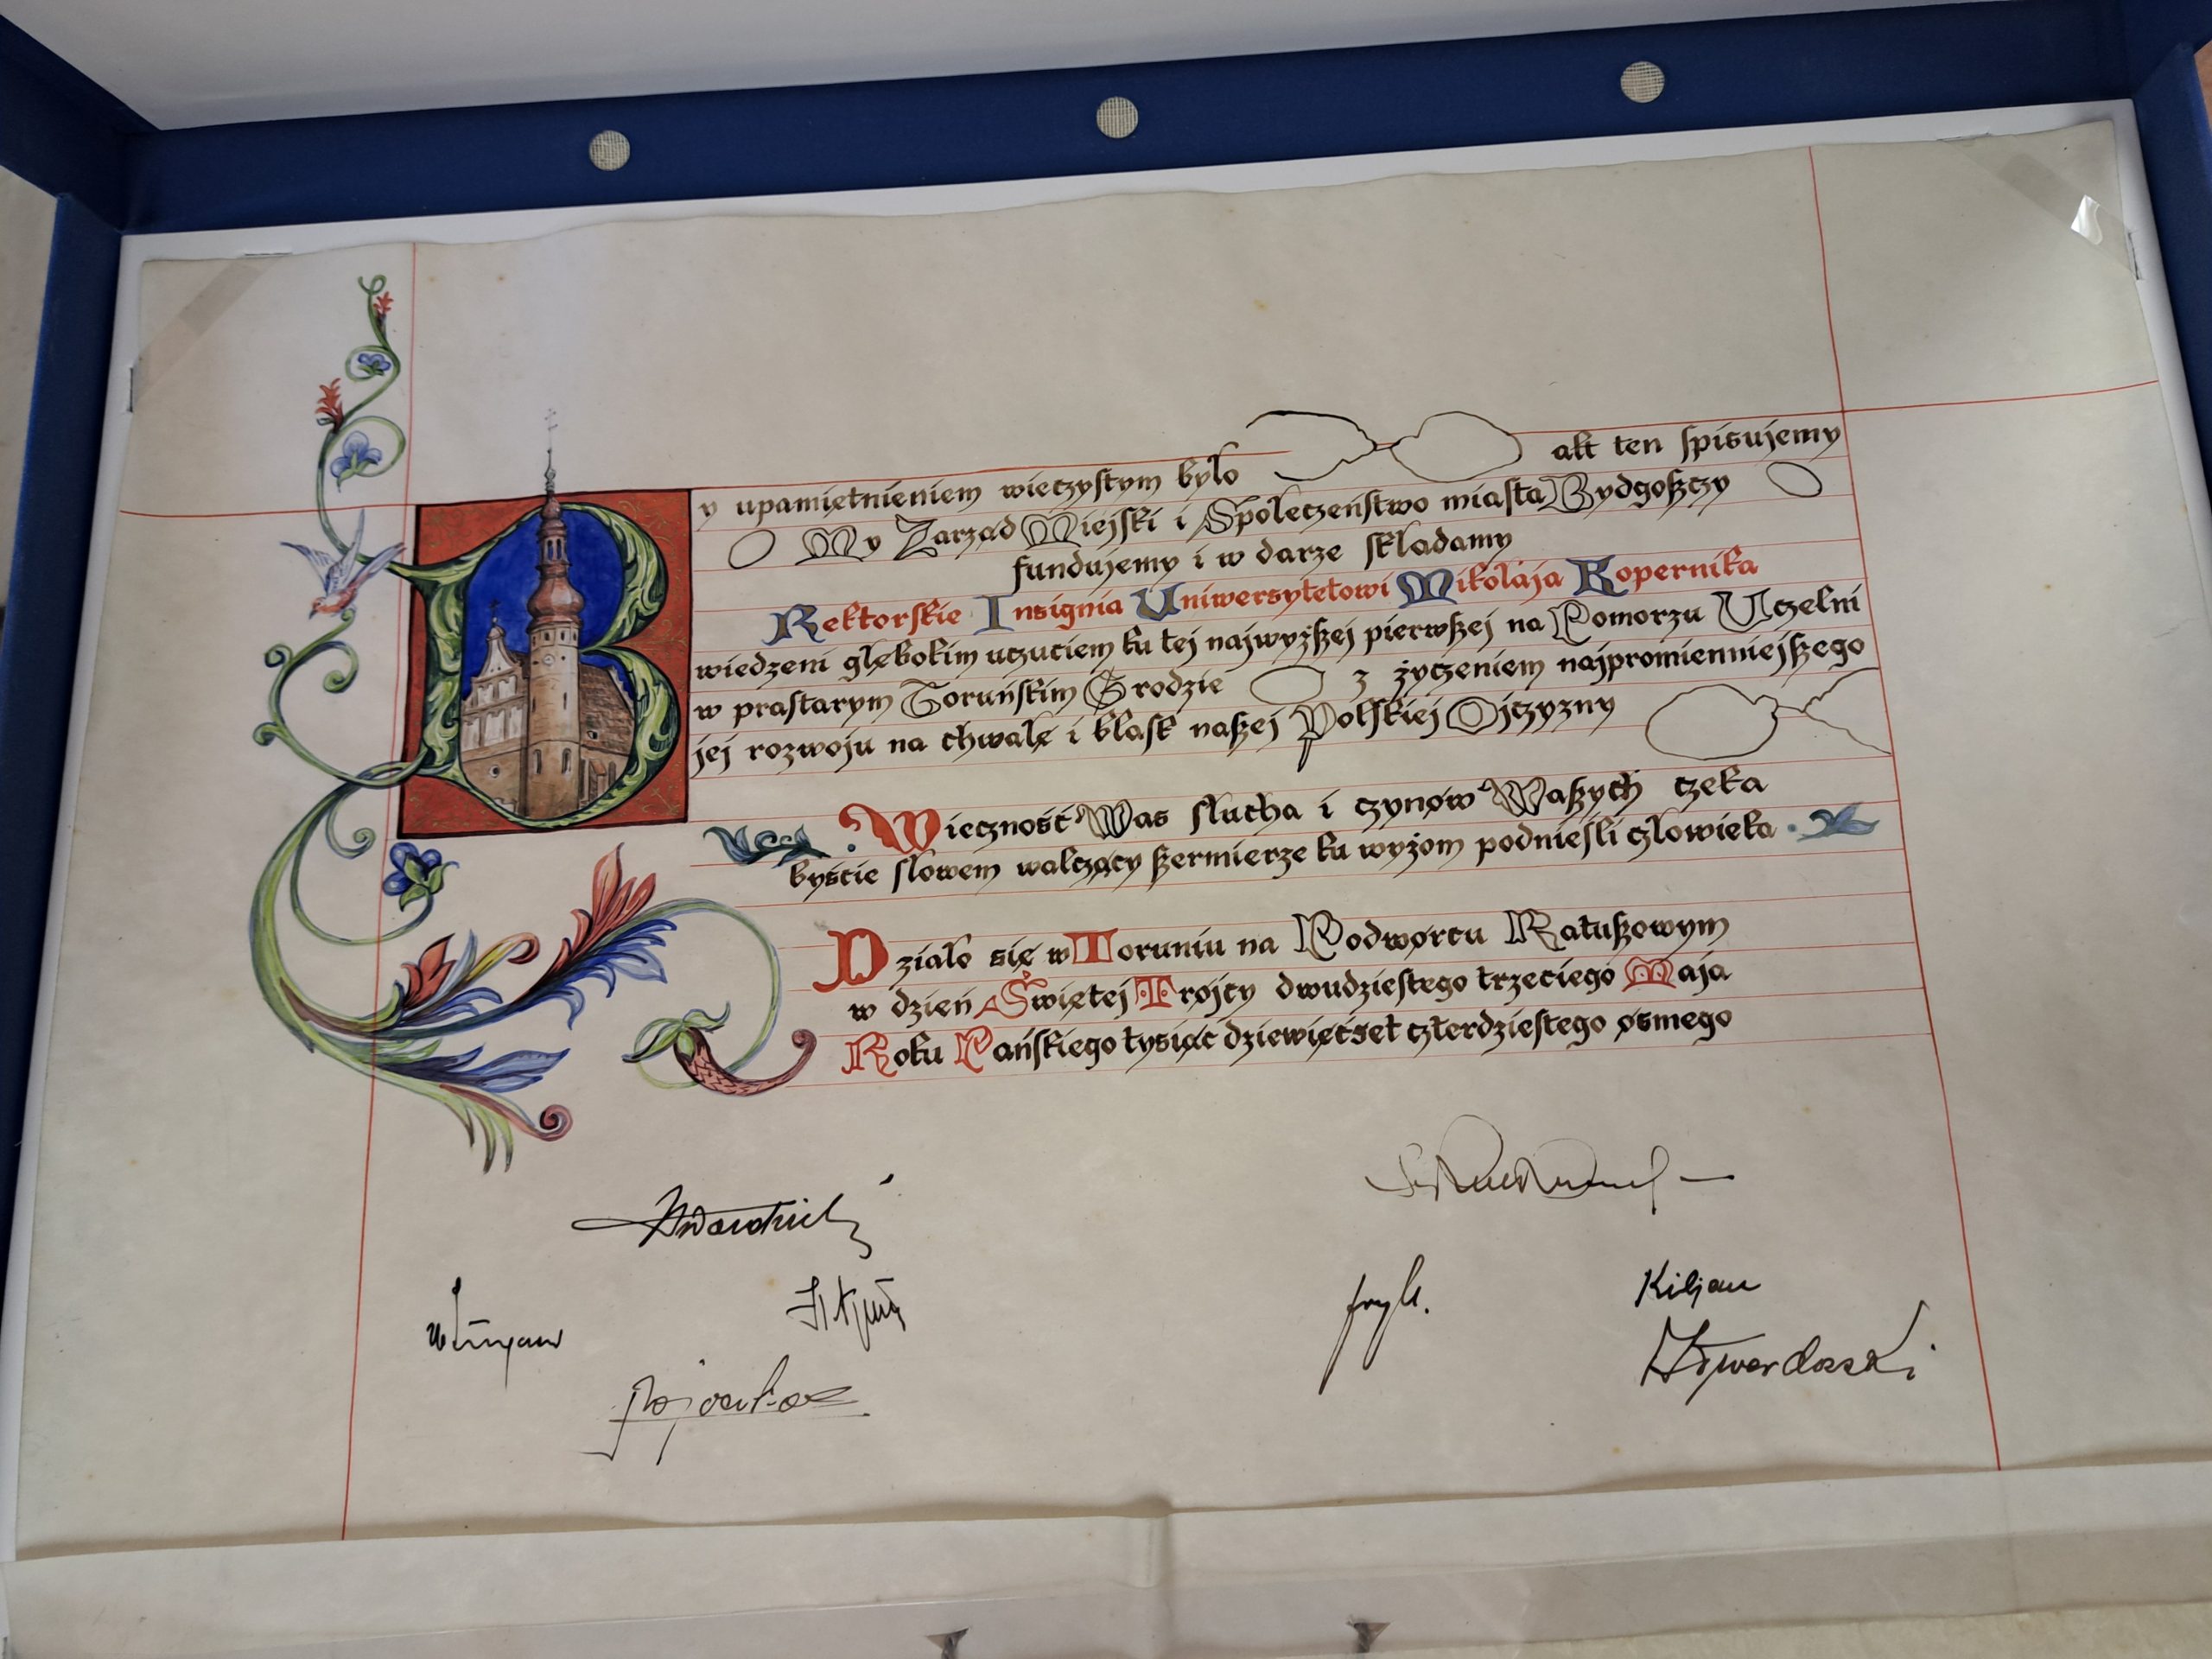 By upamiętnieniem wieczystym było akt ten spisujemy
My Zarząd Miejski i Społeczeństwo miasta Bydgoszczy
fundujemy i w darze składamy
Rektorskie Insignia Uniwersytetowi Mikołaja Kopernika
wiedzeni głębokim uczuciem ku tej najwyższej pierwszej na Pomorzu Uczelni
w prastarym Toruńskim Grodzie z życzeniem najpromienniejszego
jej rozwoju na chwałę i blask naszej Polskiej Ojczyzny
Wieczność Was słucha i czynów Waszych czeka
byście słowem walczący szermierze ku wyżom podnieśli człowieka
Działo się w Toruniu na Podwórcu Ratuszowym
w dzień Świętej Trójcy dwudziestego trzeciego Maja
Roku Pańskiego tysiąc dziewięćset czterdziestego ósmego
Kiljan